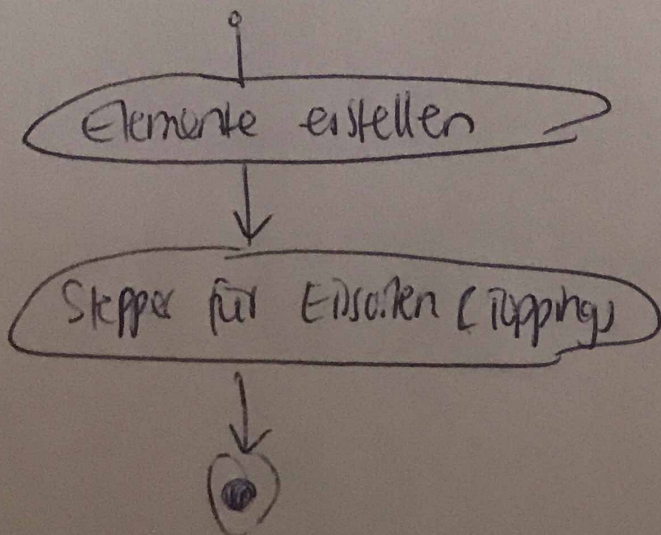 Elemente erstellen
Stepper für Eissorten (Toppings)